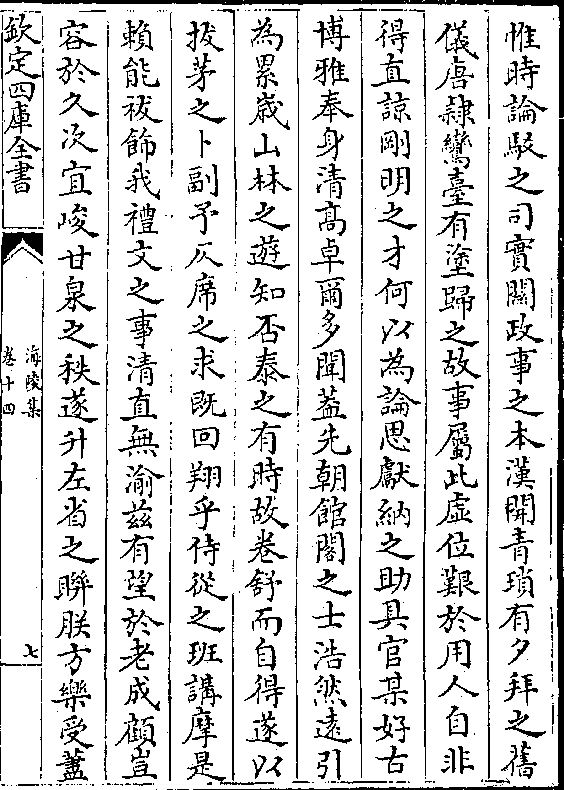 惟時論駁之司實關政事之本漢開青瑣有夕拜之舊
儀唐隸鸞臺有塗歸之故事屬此虛位艱於用人自非
得直諒剛明之才何以為論思獻納之助具官某好古
博雅奉身清髙卓爾多聞蓋先朝館閣之士浩然遠引
為累嵗山林之遊知否泰之有時故卷舒而自得遂以
拔茅之卜副予仄席之求既回翔乎侍從之班講摩是
賴能祓飾我禮文之事清直無渝兹有望於老成顧豈
容於久次宜峻甘泉之秩遂升左省之聯朕方樂受藎
欽定四庫全書
海陵集
卷十四
七